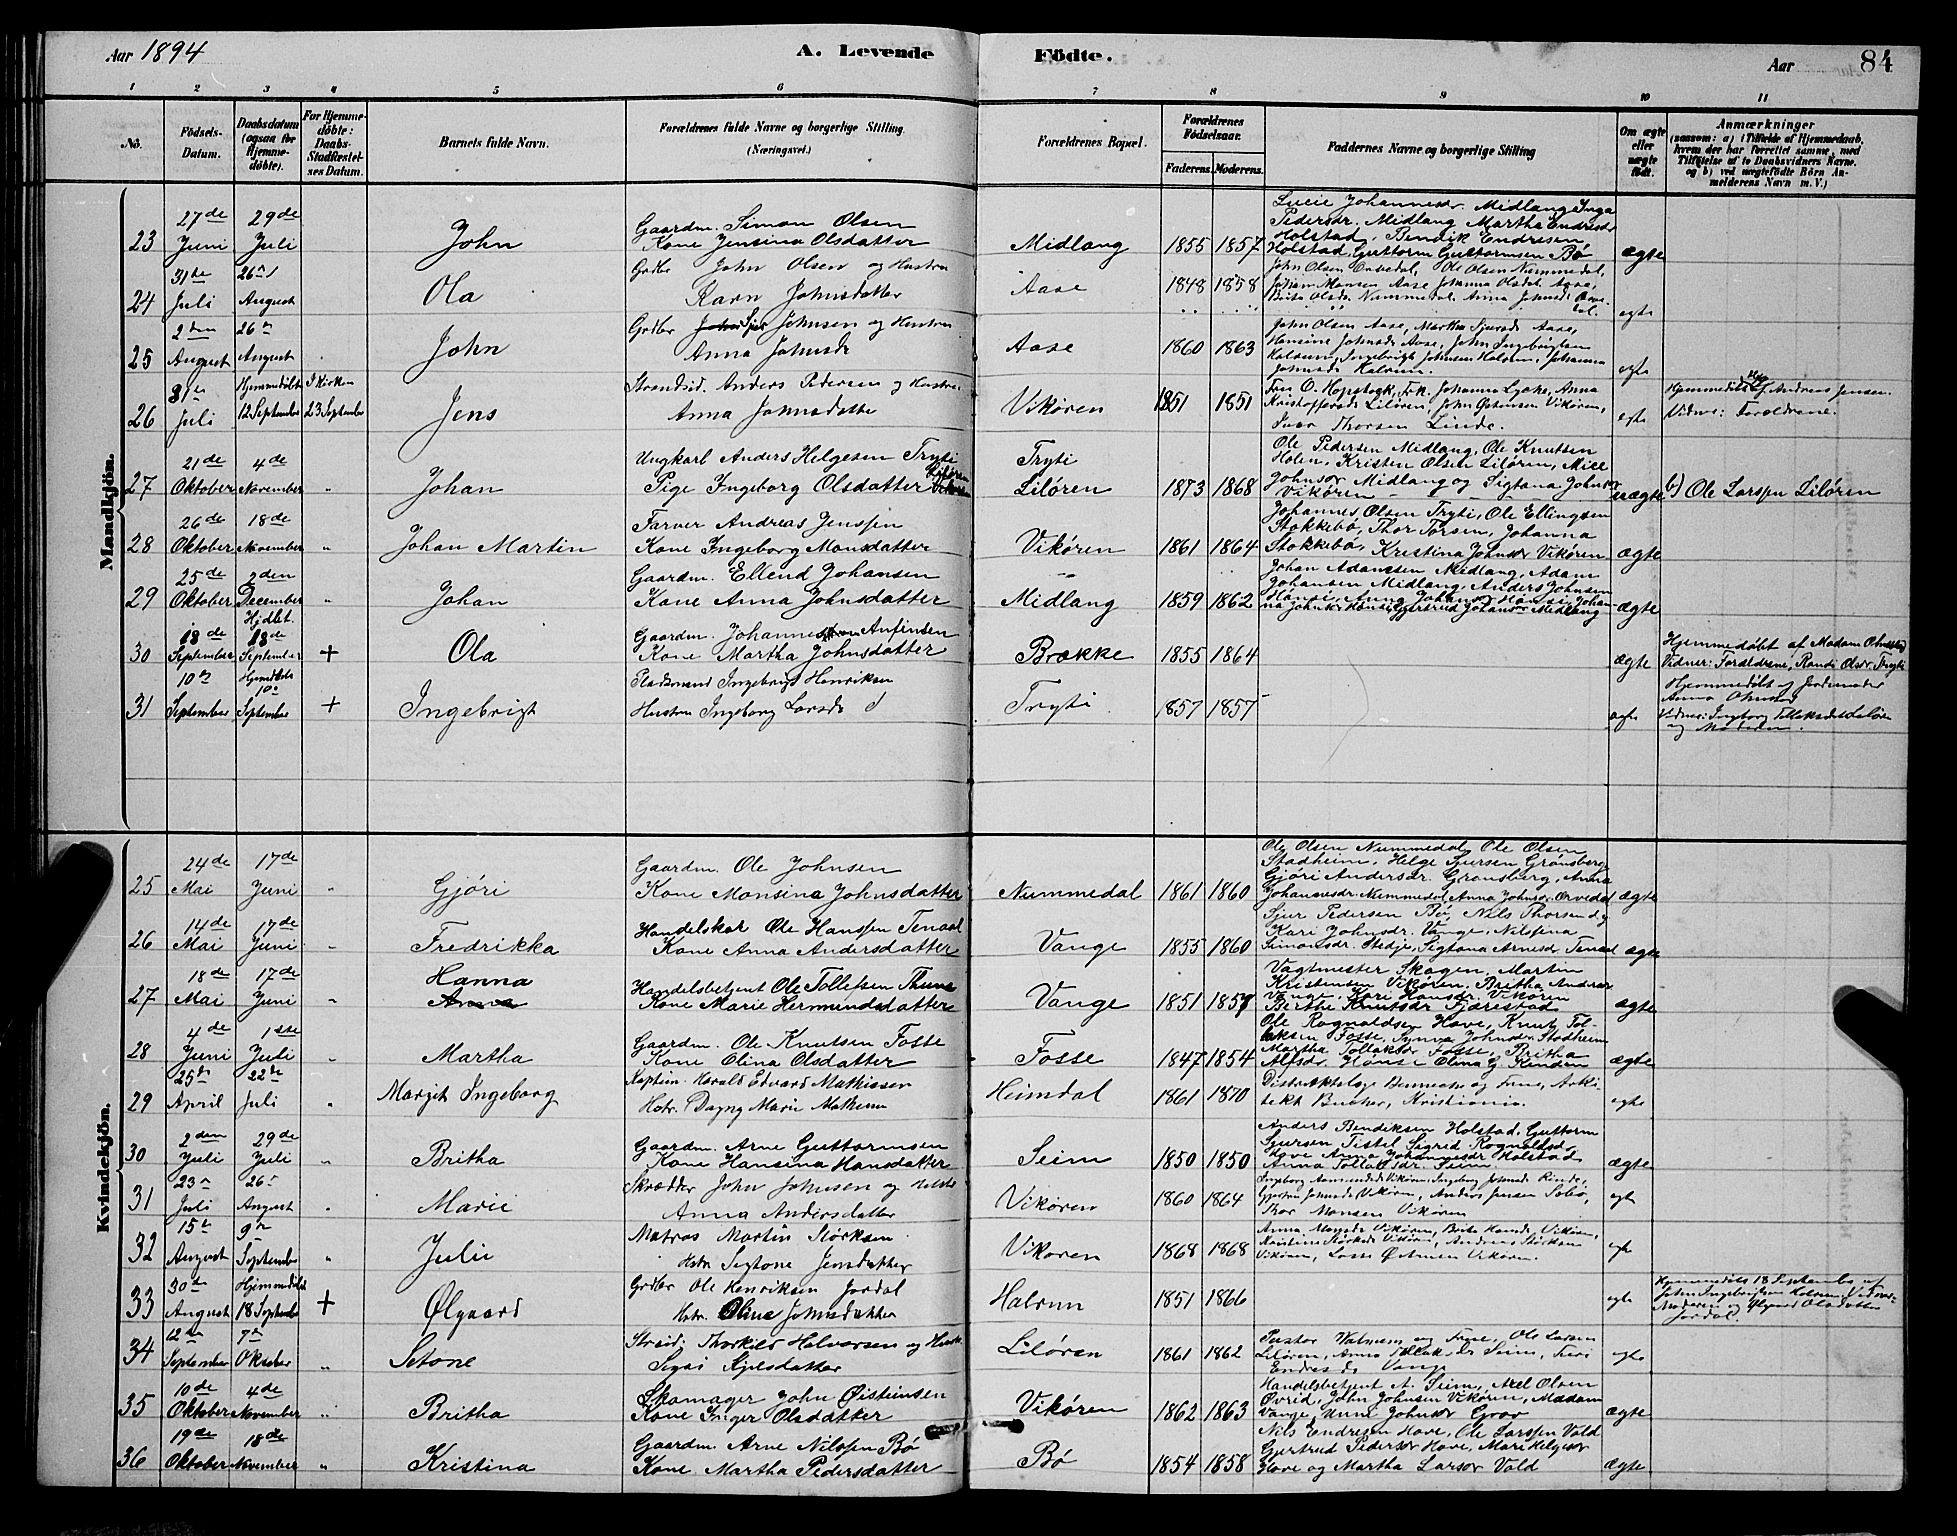 Aar 1894
A. Levende
Födte.
Aar
84
1 2 3 4 5 6 7 8 9 10 11
No.
Födsels-Datum.
Daabsdatum (ogsaa for Hjemme-döbte).
For Hjemme-döbte: Daabs-Stadfæstel-ses Datum.
Barnets fulde Navn.
Forældrenes fulde Navne og borgerlige Stilling. (Næringsvei.)
Forældrenes Bopæl.
Forældrenes Födselsaar.
Faderens. Moderens.
Faddernes Navne og borgerlige Stilling
Om ægte eller uægte födt.
Anmærkninger
(saasom: a) i Tilfælde af Hjemmedaab, hvem der har forrettet samme, med Tilföielse af to Daabsvidners Navne, og b) ved uægtefödte Börn An-melderens Navn m. V.)
Mandkjön.
23 27de Juni 29de Juli John
Gaardm. Simon Olsen
Kone Jensina Olsdatter
Midlang 1855 1857
Lucie Johannesdr. Midlang, Inga
Pedersdr. Midlang Martha Endresdr
Holstad, Bendik Endresen
Holstad, Guttorm Guttormsen Bø
ægte
24 31te Juli 26 August Ola
Grdbr John Olsen og Hustru
Karn Johnsdatter
Aase 1848 1858
John Olsen Orvedal, Ole Olsen Nummedal,
Johan Monsen Aase Johanna Olsdat. Aase,
Brita Olsdr. Nummedal Anna Johnsd.
egte
25 2den August 26 August John
Grdbr Sjur Johnsen og Hustru
Anna Johnsdr
Aase 1860 1863
John Olsen Aase, Martha Sjursd. Aase,
Hansine Johnsd. Aase, John Ingebrigtsen
Halsrun, Ingebrigt Johnsen Halsrun, Johanna
Johnsd. Halsrun.
egte
26 31te Juli Hjemmedöbt 12 September I Kirken 23 September Jens
Strandsid. Anders Pedersen og Hustru
Anna Johnsdatter
Vikøren 1851 1851
Fru O. Hopstock, Frk. Johanna Lycke, Anna
Kristoffersd. Liløren, John Østensen Vikøren,
Thorsen Linde.
egte
Hjemmedöbt af Andreas Jensen.
Vidne: Forældrene.
27 21de Oktober 4de November " Johan
Ungkarl Anders Helgesen Tryti
Pige Ingeborg Olsdatter Liløren
Tryti
Liløren 1873 1868
Ole Pedersen Midlang, Ole Knutsen
Holen, Kristen Olsen Liløren,
Johnsdr Midlang og Sigtana Johnsdr
Vikøren
uægte
b) Ole Larssen Liløren
28 26de Oktober 18de November " Johan Martin
Farver Andreas Jenssen
Kone Ingeborg Monsdatter
Vikøren 1861 1864
Johannes Olsen Tryti, Ole Ellingsen
Stokkebø, Thor Torsen, Johanna
Stokkebø, Kristina Johnsdr Vikøren
ægte
29 25de Oktober 2den December " Johan
Gaardm. Ellend Johansen
Kone Anna Johnsdatter
Midlang 1859 1862
Johan Adamsen Midlang, Adam
Johansen Midlang, Anders Johnsen
Hønsi, Anna Johansdr Hønsi, Johan-
na Johnsdr Hønsi, Gjertrud Johansdr Midlang
ægte
30 18de September Hjdbt. 18de September + Ola
Gaardm. Johannes Anfinsen
Kone Martha Johnsdatter
Brække 1855 1864
ægte
Hjemmedøbt af Madam
Vidner: Forældrene, Randi Olsdr. Tryti
31 10de September Hjemdøbt 10 September + Ingebrigt
Pladsmand Ingebrigt Henriksen
Hustru Ingeborg Larsdr
Tryti 1857 1857
egte
Hjemmedöbt af Jordemoder
Anna
Vidner: Ingeborg Tollaksdtr Liløren
og Moderen.
Kvindekjön.
25 24de Mai 17de Juni " Gjøri
Gaardm. Ole Johnsen
Kone Monsina Johnsdatter
Nummedal 1861 1860
Ole Olsen Nummedal, Ole Olsen
Stadheim, Helge Sjursen Grønsberg,
Gjøri Andersdr. Grønsberg, Anna
Johannesdr. Nummedal, Anna Johnsdr. Orvedal
ægte
26 14de Mai 17de Juni " Fredrikka
Handelskar Ole Hanssen Tenaal
Kone Anna Andersdatter
Vange 1855 1860
Sjur Pedersen Bø, Nils Thorsen og
Kari Johnsdr. Vange, Nilsina
Simonsdr. Stedje, Sigtana Arnesdr Tenaal
ægte
27 18de Mai 17de Juni " Hanna
Anna
Handelsbetjent Ole Tollefsen Thune
Kone Marie Hermundsdatter
Vange 1851 1857
Vagtmester Skagen, Martin
Kristensen Vikøren, Britha Andersdr
Vange, Kari Hansdr. Vikøren
Birthe Knutsdr Fjærestad
ægte
28 4de Juni 1ste Juli " Martha
Gaardm. Ole Knutsen Fosse
Kone Olina Olsdatter
Fosse 1847 1854
Ole Rognaldsen Hove, Knut Tol-
laksen Fosse, Synna Johnsdr. Stadheim
Martha Tollaksdr Fosse, Britha
Alfsdr. Hønsi Olina G. Kinden
ægte
29 25de April 22de Juli " Margit Ingeborg
Kaptein Harald Edvard Mathisen
Hstr. Dagny Marie Mathisen
Heimdal 1861 1870
Distriktslæge og Frue, Arki-
tekt Bucher, Kristiania.
egte
30 2den Juli 29de Juli " Britha
Gaardm. Arne Guttormsen
Kone Hansina Hansdatter
Seim 1850 1850
Anders Bendiksen Holstad, Guttorm
Sjursen Tistel Sigrid Rognaldsd.
Hove Anna Johannesdr Holstad
Anna Tollaksdr. Seim
ægte
31 23 Juli 26 August " Marie
Skrædder John Johnsen og Hstr
Anna Andersdatter
Vikøren 1860 1864
Ingeborg Aamundsd. Vikøren, Ingeborg Johnsd. Rinde,
Gjertru Johnsd. Vikøren, Anders Jensen Sæbø,
Thor Monsen Vikøren
egte
32 15de August 9de September " Julie
Matros Martin Størksen
Hstr. Sigtone Jensdatter
Vikøren 1868 1868
Anna Monsdr Vikøren, Brita Hansdr. Vikøren,
Kristine Størksd. Vikøren, Andreas Størksen
Vikøren, Lasse Østensen Vikøren.
egte
33 30te August Hjemmedöbt 18 September + Ølgaard
Grdbr Ole Henriksen Jordal
Hstr. Oline Johnsdatter
Halsrun 1851 1866
egte
Hjemmedöbt 18 September af
John Ingebrigtsen Halsrun. Vidner:
Moderen og Ølgaard Olsdatter
Jordal.
34 12te September 7de Oktober " Setone
Strsid. Thorkild Halvorsen og Hustr
Sigri Kjelsdatter
Liløren 1861 1862
Pastor og Frue, Ole Larsen
Liløren, Anna Tollaksdr Seim,
Endresdr Vange
egte
35 10de Oktober 4de November " Britha
Skomager John Øisteinsen
Kone Inger Olsdatter
Vikøren 1862 1863
Handelsbetjent A. Seim, Axel Olsen
Øvrid, John Johnsen Vikøren, Madam
Vange, Unni Johnsdr Grov
ægte
36 19de Oktober 18de November " Kristina
Gaardm. Arne Nilssen Bø
Kone Martha Pedersdatter
Bø 1854 1858
Nils Endresen Hove, Ole Larssen Vold
Gjertrud Pedersdr Hove, Mari Helgesdr
Hove og Martha Larsdr Vold
ægte